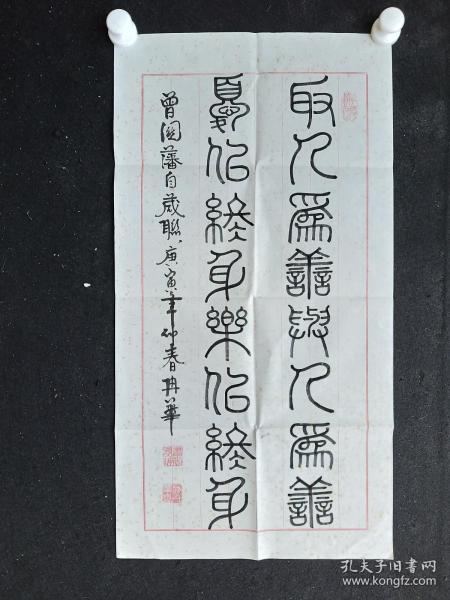 取人為善與人為善
憂以終身樂以終身
曾國藩自箴聯庚寅年仲春冉華
孔夫子旧书网
www.kongfz.com